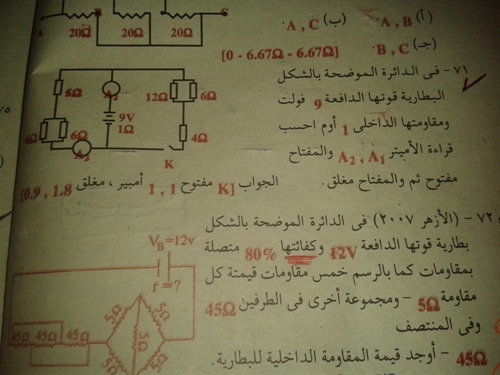 A B C
20Ω 20Ω 20Ω
(أ) A , B . (ب) A , C .
(جـ) B , C . [0 - 6.67Ω - 6.67Ω]
٧١- فى الدائرة الموضحة بالشكل
البطارية قوتها الدافعة 9 فولت
ومقاومتها الداخلى 1 أوم احسب
قراءة الأميتر A₂ , A₁ والمفتاح
مفتوح ثم والمفتاح مغلق.
5Ω A₁ 12Ω 6Ω
9V
1Ω
6Ω 6Ω 4Ω
A₂ K
الجواب [K مفتوح 1 , 1 أمبير ، مغلق 1.8 , 0.9]
٧٢- (الأزهر ٢٠٠٧) فى الدائرة الموضحة بالشكل
بطارية قوتها الدافعة 12V وكفائتها 80% متصلة
بمقاومات كما بالرسم خمس مقاومات قيمتة كل
مقاومة 5Ω – ومجموعة أخرى فى الطرفين 45Ω
وفى المنتصف
45Ω – أوجد قيمة المقاومة الداخلية للبطارية.
V_B=12v
r=?
5Ω 5Ω
5Ω
5Ω 5Ω
45Ω 45Ω 45Ω